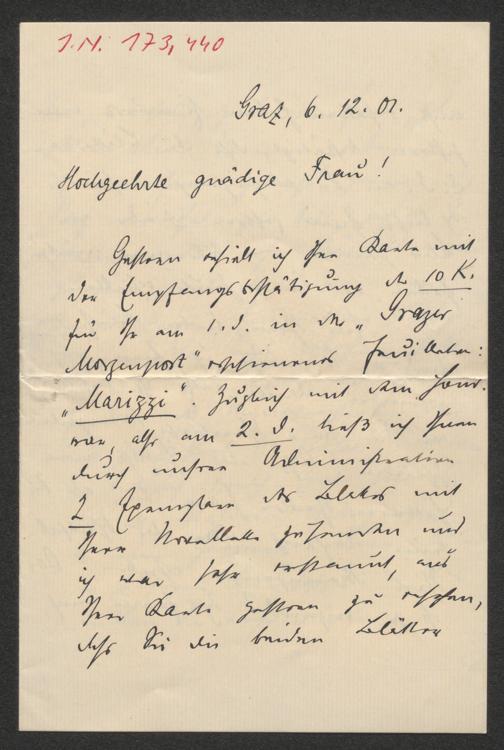 J.N. 173,440
Graz, 6. 12. 01.
Hochgeehrte gnädige Frau!
Gestern erhielt ich Ihre Karte mit
der Empfangsbestätigung der 10 K.
für Ihr am 1. d. in der „Grazer
Morgenpost" erschienenes Feuilleton:
„Marizzi". Zugleich mit dem Hono-
rar, also am 2. d. ließ ich Ihnen
durch unsere Administration
2 Exemplare des Blattes mit
Ihrer Novellette zusenden und
ich war sehr erstaunt, aus
Ihrer Karte gestern zu ersehen,
daß Sie die beiden Blätter